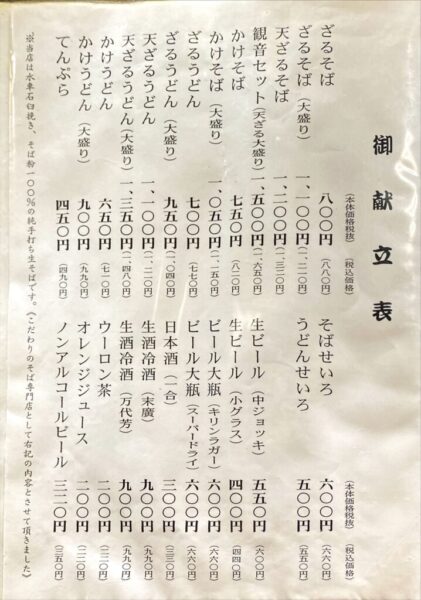 御献立表
(本体価格税抜) (税込価格)
ざるそば 八〇〇円 (八八〇円)
ざるそば(大盛り) 一、一〇〇円 (一、二一〇円)
天ざるそば 一、二〇〇円 (一、三二〇円)
観音セット(天ざる大盛り) 一、五〇〇円 (一、六五〇円)
かけそば 七五〇円 (八二〇円)
かけそば(大盛り) 一、〇五〇円 (一、一五〇円)
ざるうどん 七〇〇円 (七七〇円)
ざるうどん(大盛り) 九五〇円 (一、〇四〇円)
天ざるうどん 一、一〇〇円 (一、二一〇円)
天ざるうどん(大盛り) 一、三五〇円 (一、四八〇円)
かけうどん 六五〇円 (七一〇円)
かけうどん(大盛り) 九〇〇円 (九九〇円)
てんぷら 四五〇円 (四九〇円)
(本体価格税抜) (税込価格)
そばせいろ 六〇〇円 (六六〇円)
うどんせいろ 五〇〇円 (五五〇円)
生ビール(中ジョッキ) 五五〇円 (六〇〇円)
生ビール(小グラス) 四〇〇円 (四四〇円)
ビール大瓶(キリンラガー) 六〇〇円 (六六〇円)
ビール大瓶(スーパードライ) 六〇〇円 (六六〇円)
日本酒(一合) 三〇〇円 (三三〇円)
生酒冷酒(末廣) 九〇〇円 (九九〇円)
生酒冷酒(万代芳) 九〇〇円 (九九〇円)
ウーロン茶 二〇〇円 (二二〇円)
オレンジジュース 二〇〇円 (二二〇円)
ノンアルコールビール 三二〇円 (三五〇円)
※当店は水車石臼挽き、そば粉一〇〇%の純手打ち生そばです。(こだわりのそば専門店として右記の内容とさせて頂きました)